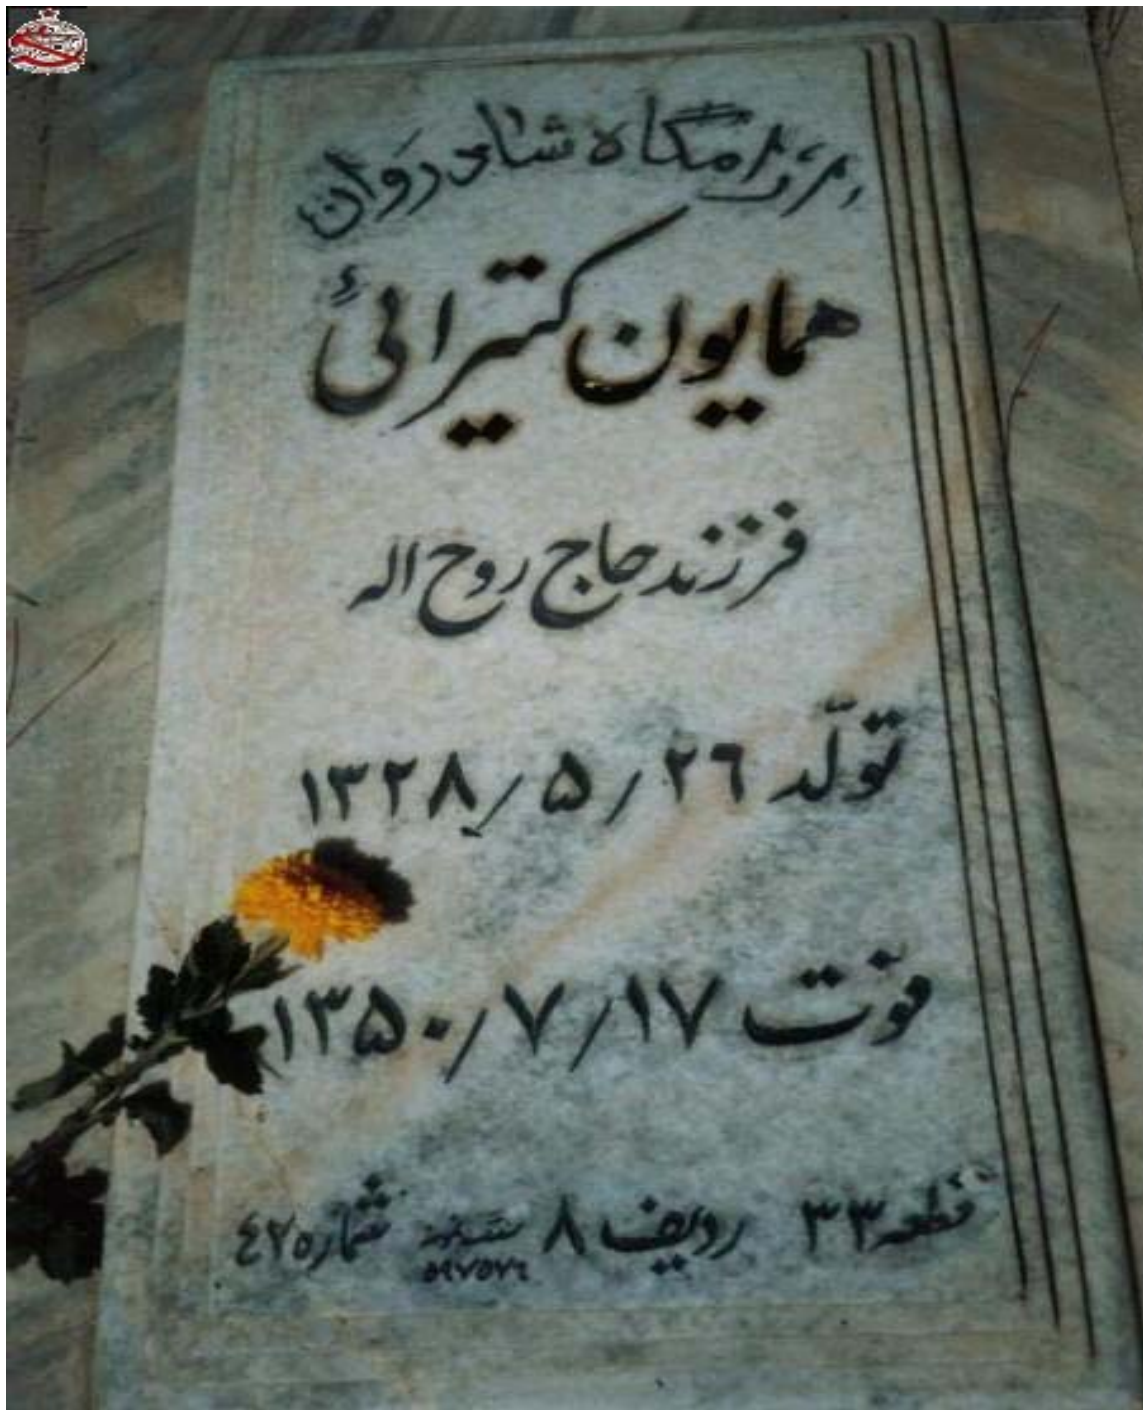 آرامگاه شادروان
همایون کتیرائی
فرزند حاج روح اله
تولّد ۲۶/۵/۱۳۲۸
فوت ۱۷/۷/۱۳۵۰
قطعه ۳۳ ردیف ۸ شماره ۴۲